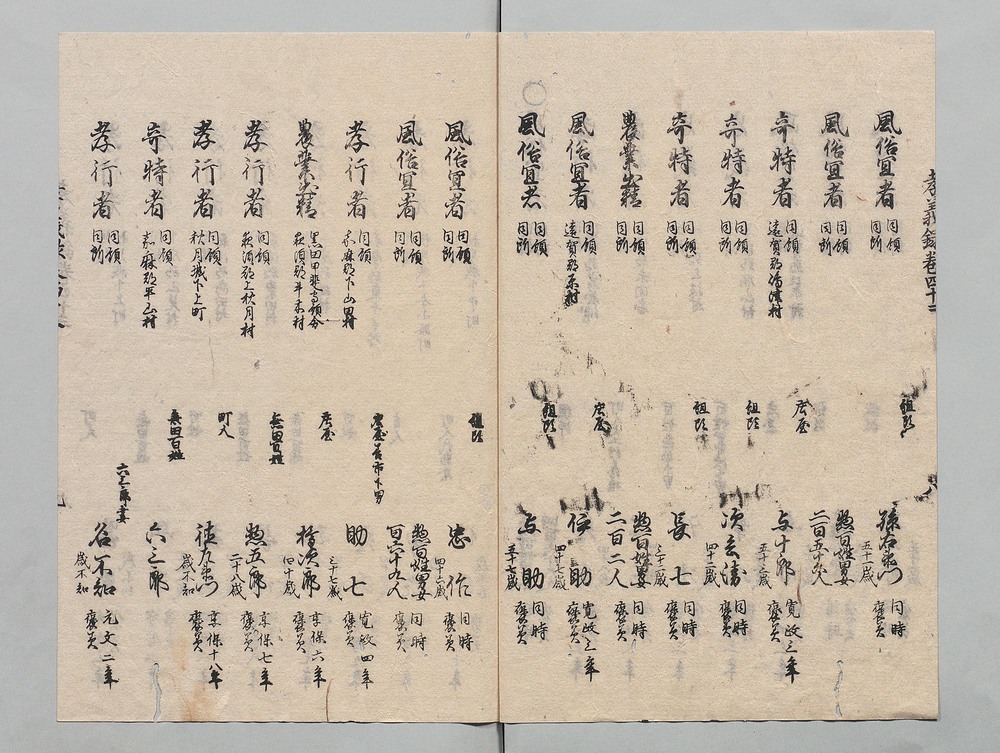 孝義録巻四十二
風俗宜者 同領同所 組頭 孫右衛門 五十一歳 同時褒美
風俗宜者 同領同所 惣百姓男女 二百五十六人
奇特者 同領遠賀郡 庄屋 与十郎 五十三歳 寛政三年褒美
奇特者 同領同所 組頭 次兵衛 四十二歳 同時褒美
奇特者 同領同所 組頭 長七 三十二歳 同時褒美
農業出精 同領同所 惣百姓男女 二百二人 同時褒美
風俗宜者 同領遠賀郡 庄屋 伊助 四十七歳 寛政三年褒美
風俗宜者 同領同所 組頭 与助 五十七歳 同時褒美
風俗宜者 同領同所 組頭 忠作 四十六歳 同時褒美
風俗宜者 同領同所 惣百姓男女 百六十九人 同時褒美
孝行者 同領嘉麻郡下山田村 庄屋善市下男 助七 三十七歳 寛政四年褒美
農業出精 黒田甲斐守領分 夜須郡牛木村 庄屋 権次郎 四十歳 享保六年褒美
孝行者 同領夜須郡上秋月村 無田百姓 惣五郎 二十八歳 享保七年褒美
孝行者 同領秋月城下上町 町人 徳左衛門 歳不知 享保十八年褒美
奇特者 同領嘉麻郡平山村 無田百姓 六三郎
孝行者 同領同所 六三郎妻 名不知 歳不知 元文二年褒美